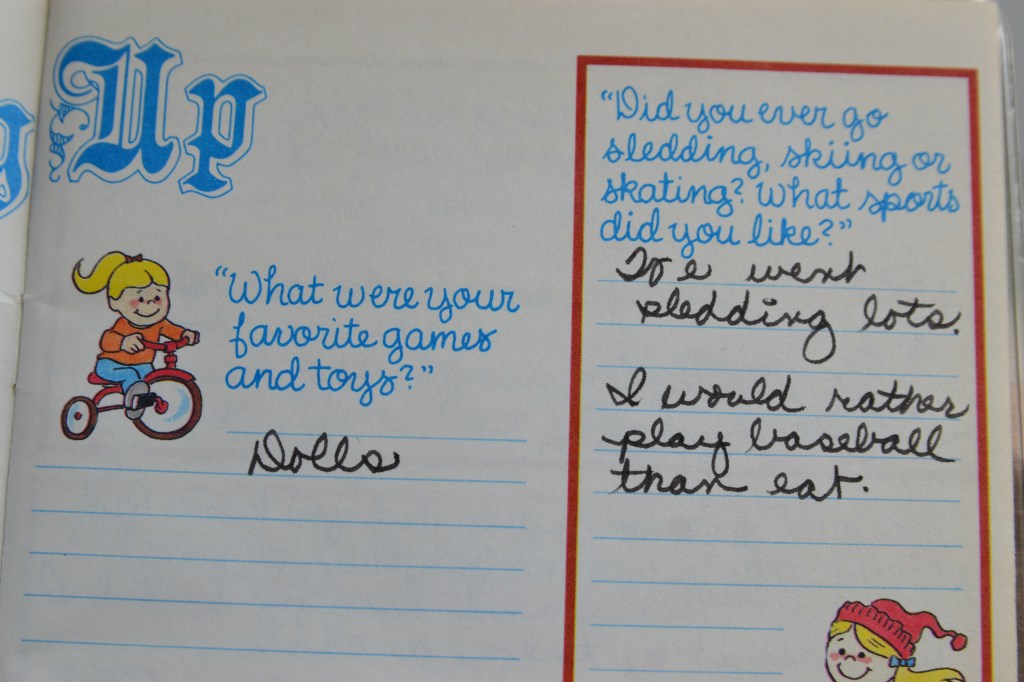 g Up
"What were your
favorite games
and toys?"
Dolls
"Did you ever go
sledding, skiing or
skating? What sports
did you like?"
We went
sledding lots.
I would rather
play baseball
than eat.